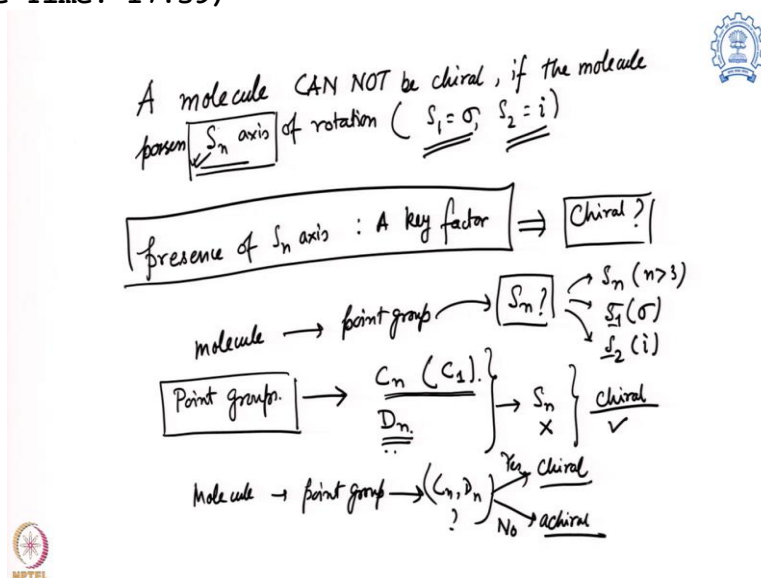 A molecule CAN NOT be chiral, if the molecule
possess Sn axis of rotation ( S1 = σ, S2 = i )
presence of Sn axis : A key factor ⇒ Chiral ?
molecule → point group → Sn ? → Sn (n>3)
S1 (σ)
S2 (i)
Point groups. → Cn (C1).
Dn.
→ Sn
×
chiral
✓
Molecule → point group → (Cn, Dn)
?
Yes Chiral
No achiral
NPTEL